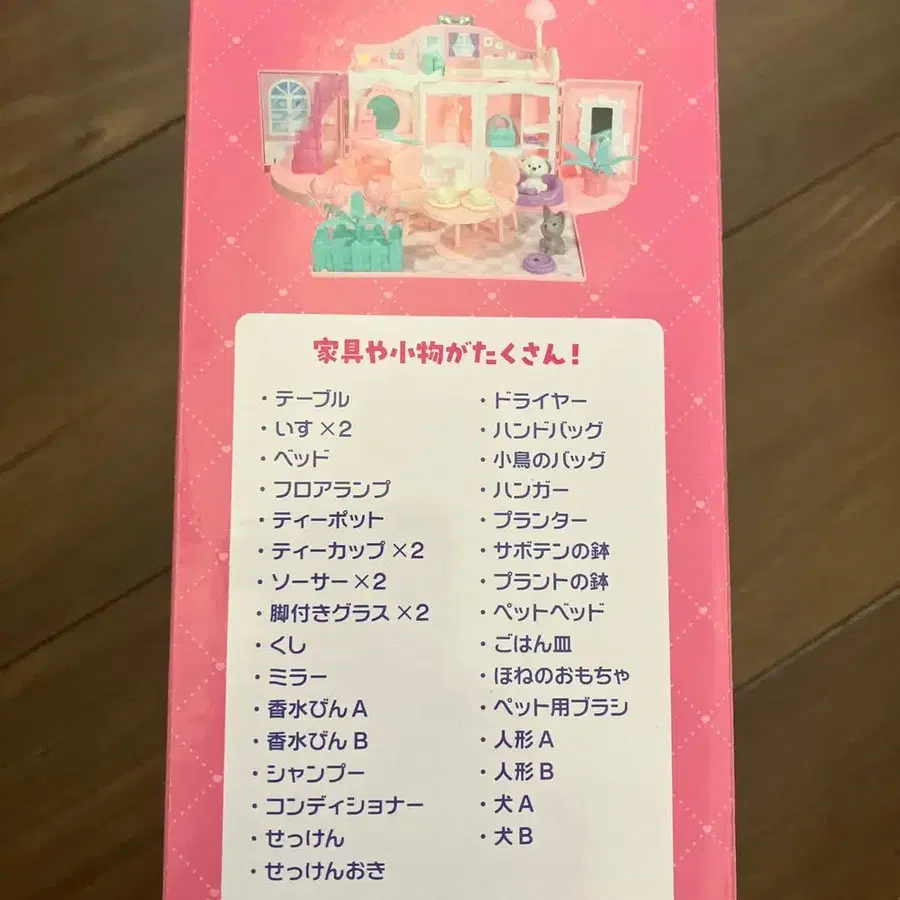 家具や小物がたくさん!
・テーブル
・いす×2
・ベッド
・フロアランプ
・ティーポット
・ティーカップ×2
・ソーサー×2
・脚付きグラス×2
・くし
・ミラー
・香水びんA
・香水びんB
・シャンプー
・コンディショナー
・せっけん
・せっけんおき
・ドライヤー
・ハンドバッグ
・小鳥のバッグ
・ハンガー
・プランター
・サボテンの鉢
・プラントの鉢
・ペットベッド
・ごはん皿
・ほねのおもちゃ
・ペット用ブラシ
・人形A
・人形B
・犬A
・犬B